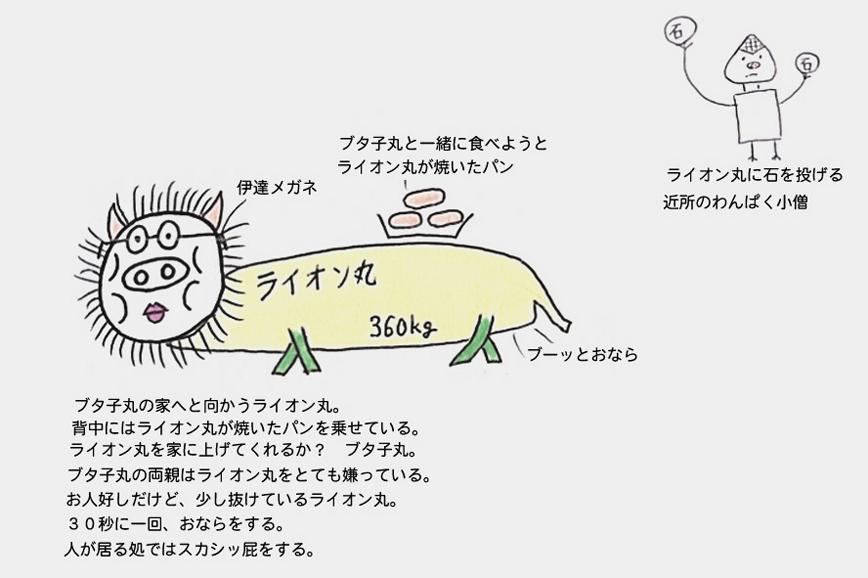 石
石
ブタ子丸と一緒に食べようと
ライオン丸が焼いたパン
ライオン丸に石を投げる
近所のわんぱく小僧
伊達メガネ
ライオン丸
360kg
ブーッとおなら
ブタ子丸の家へと向かうライオン丸。
背中にはライオン丸が焼いたパンを乗せている。
ライオン丸を家に上げてくれるか？　ブタ子丸。
ブタ子丸の両親はライオン丸をとても嫌っている。
お人好しだけど、少し抜けているライオン丸。
３０秒に一回、おならをする。
人が居る処ではスカシッ屁をする。